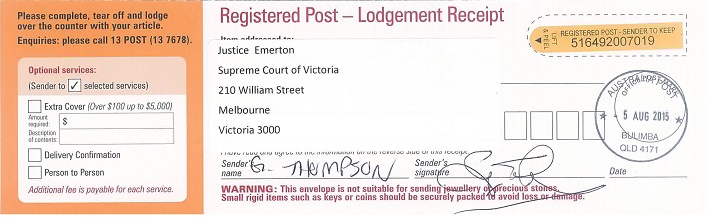 Please complete, tear off and lodge
over the counter with your article.
Enquiries: please call 13 POST (13 7678).
Optional services:
(Sender to ✓ selected services)
Extra Cover (Over $100 up to $5,000)
Amount
required: $
Description
of contents:
Delivery Confirmation
Person to Person
Additional fee is payable for each service.
Registered Post – Lodgement Receipt
Item addressed to:
Justice Emerton
Supreme Court of Victoria
210 William Street
Melbourne
Victoria 3000
LIFT
& PEEL
REGISTERED POST - SENDER TO KEEP
516492007019
AUSTRALIA POST
5 AUG 2015
BULIMBA
QLD 4171
agree to the information on the reverse side of this receipt
Sender's
name G. THOMPSON
Sender's
signature
Date
WARNING: This envelope is not suitable for sending jewellery or precious stones.
Small rigid items such as keys or coins should be securely packed to avoid loss or damage.